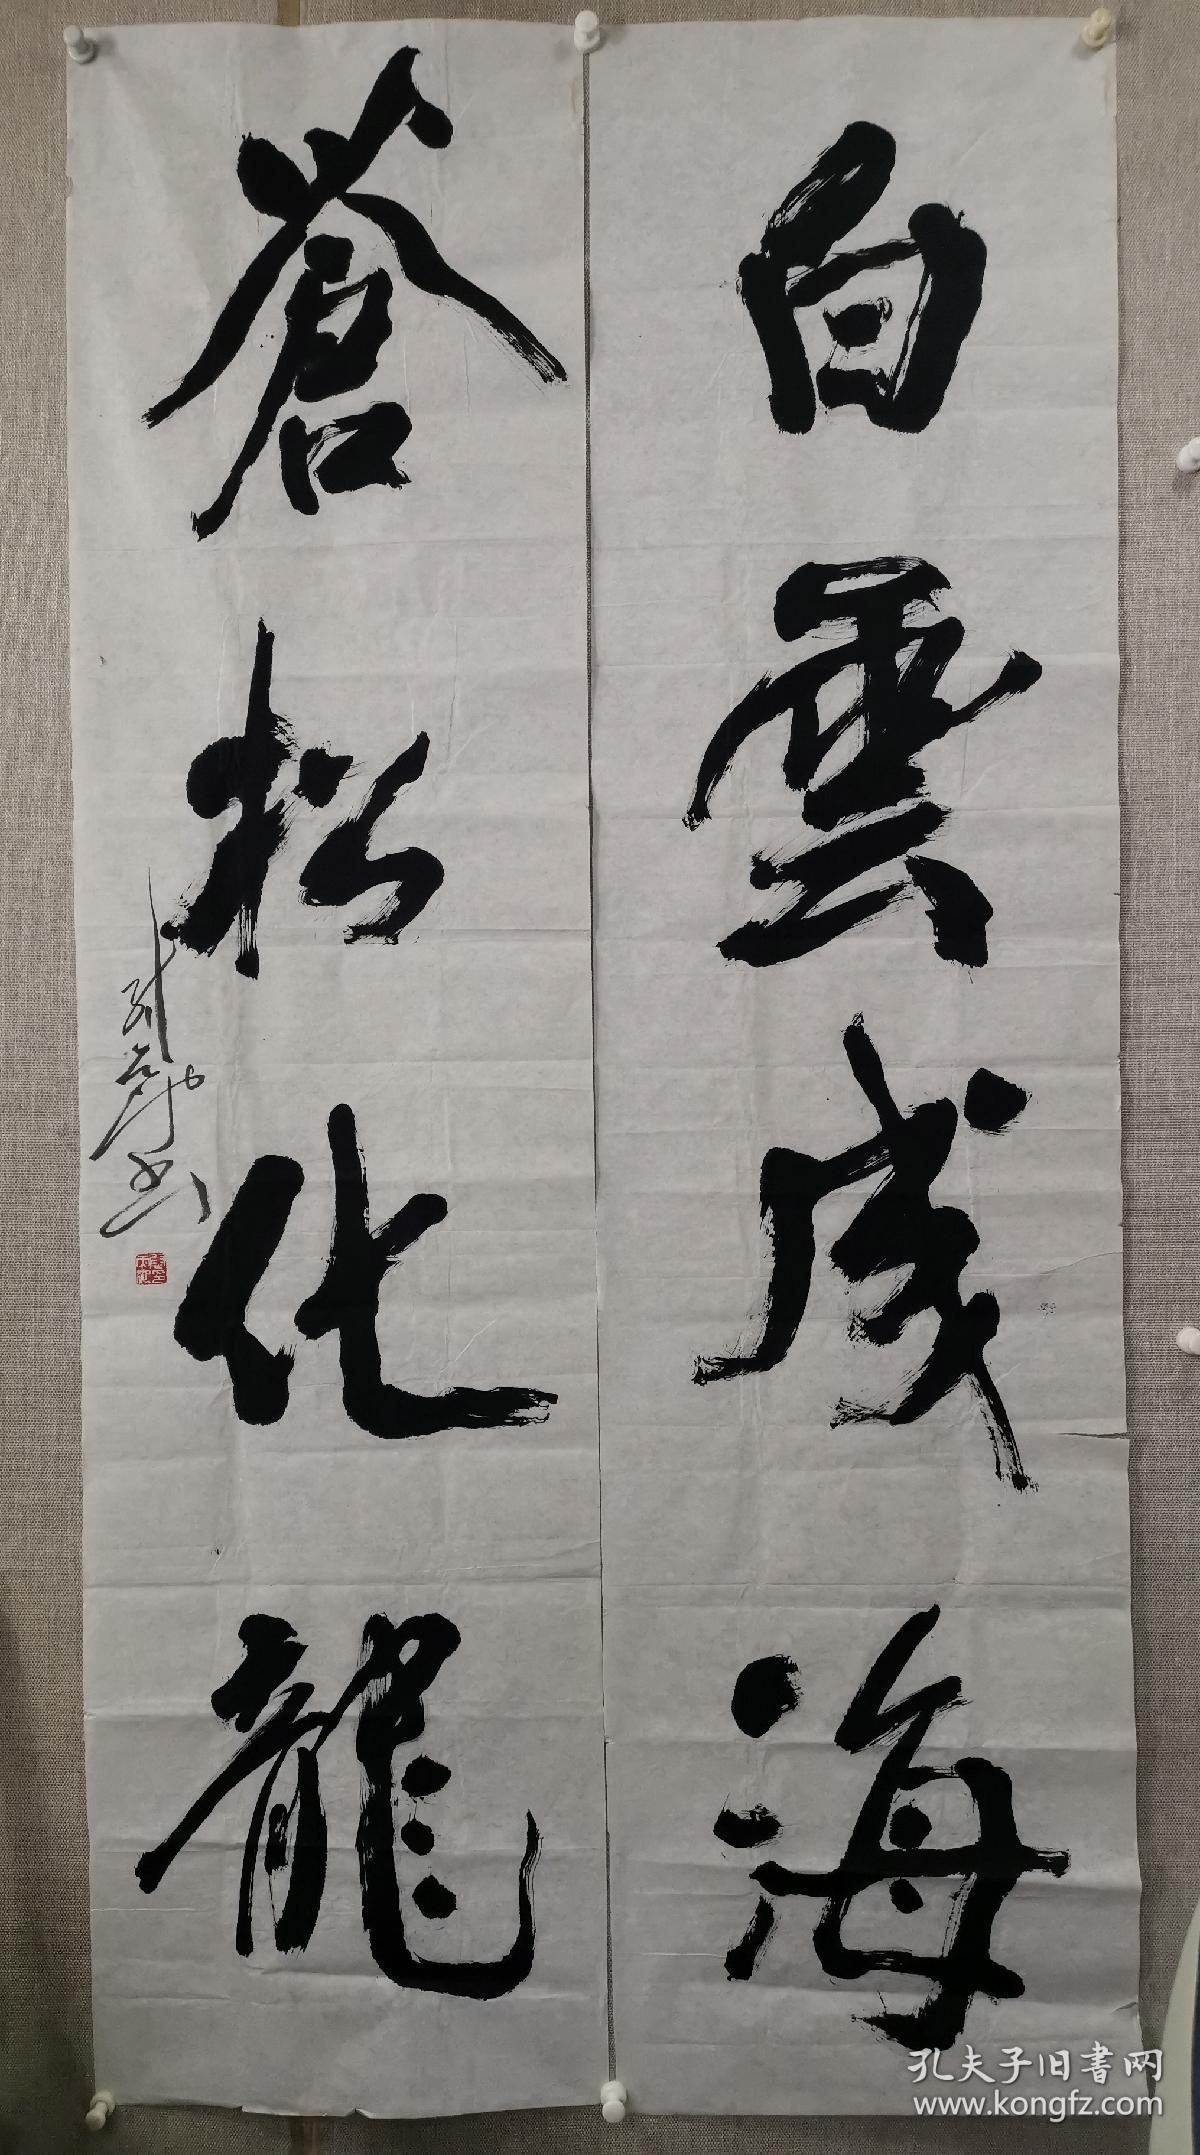 白雲成海
蒼松化龍
孔夫子旧書网
www.kongfz.com